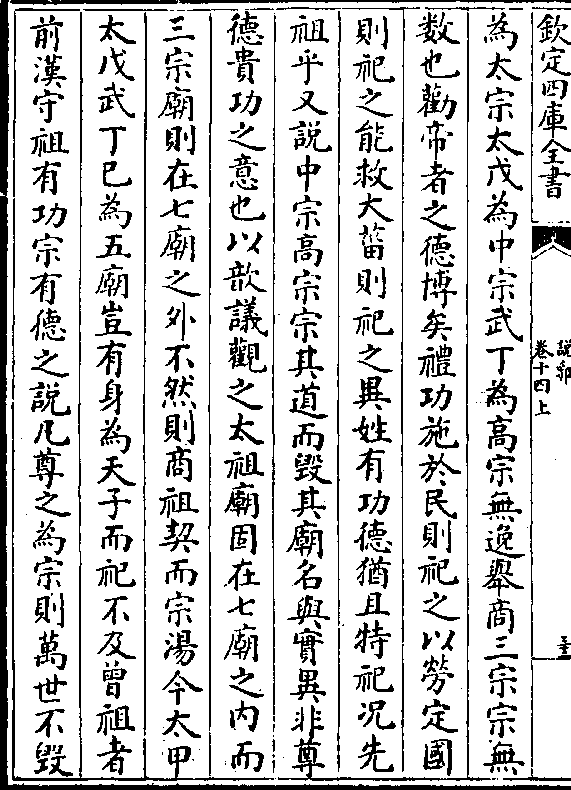 欽定四庫全書
說郛
卷十四上
為太宗太戊為中宗武丁為高宗無逸舉商三宗宗無
数也勸帝者之德博矣禮功施於民則祀之以勞定國
則祀之能救大菑則祀之異姓有功德猶且特祀況先
祖乎又説中宗高宗宗其道而毀其廟名與實異非尊
德貴功之意也以歆議觀之太祖廟固在七廟之内而
三宗廟則在七廟之外不然則商祖契而宗湯今太甲
太戊武丁已為五廟豈有身為天子而祀不及曾祖者
前漢守祖有功宗有德之説凡尊之為宗則萬世不毀